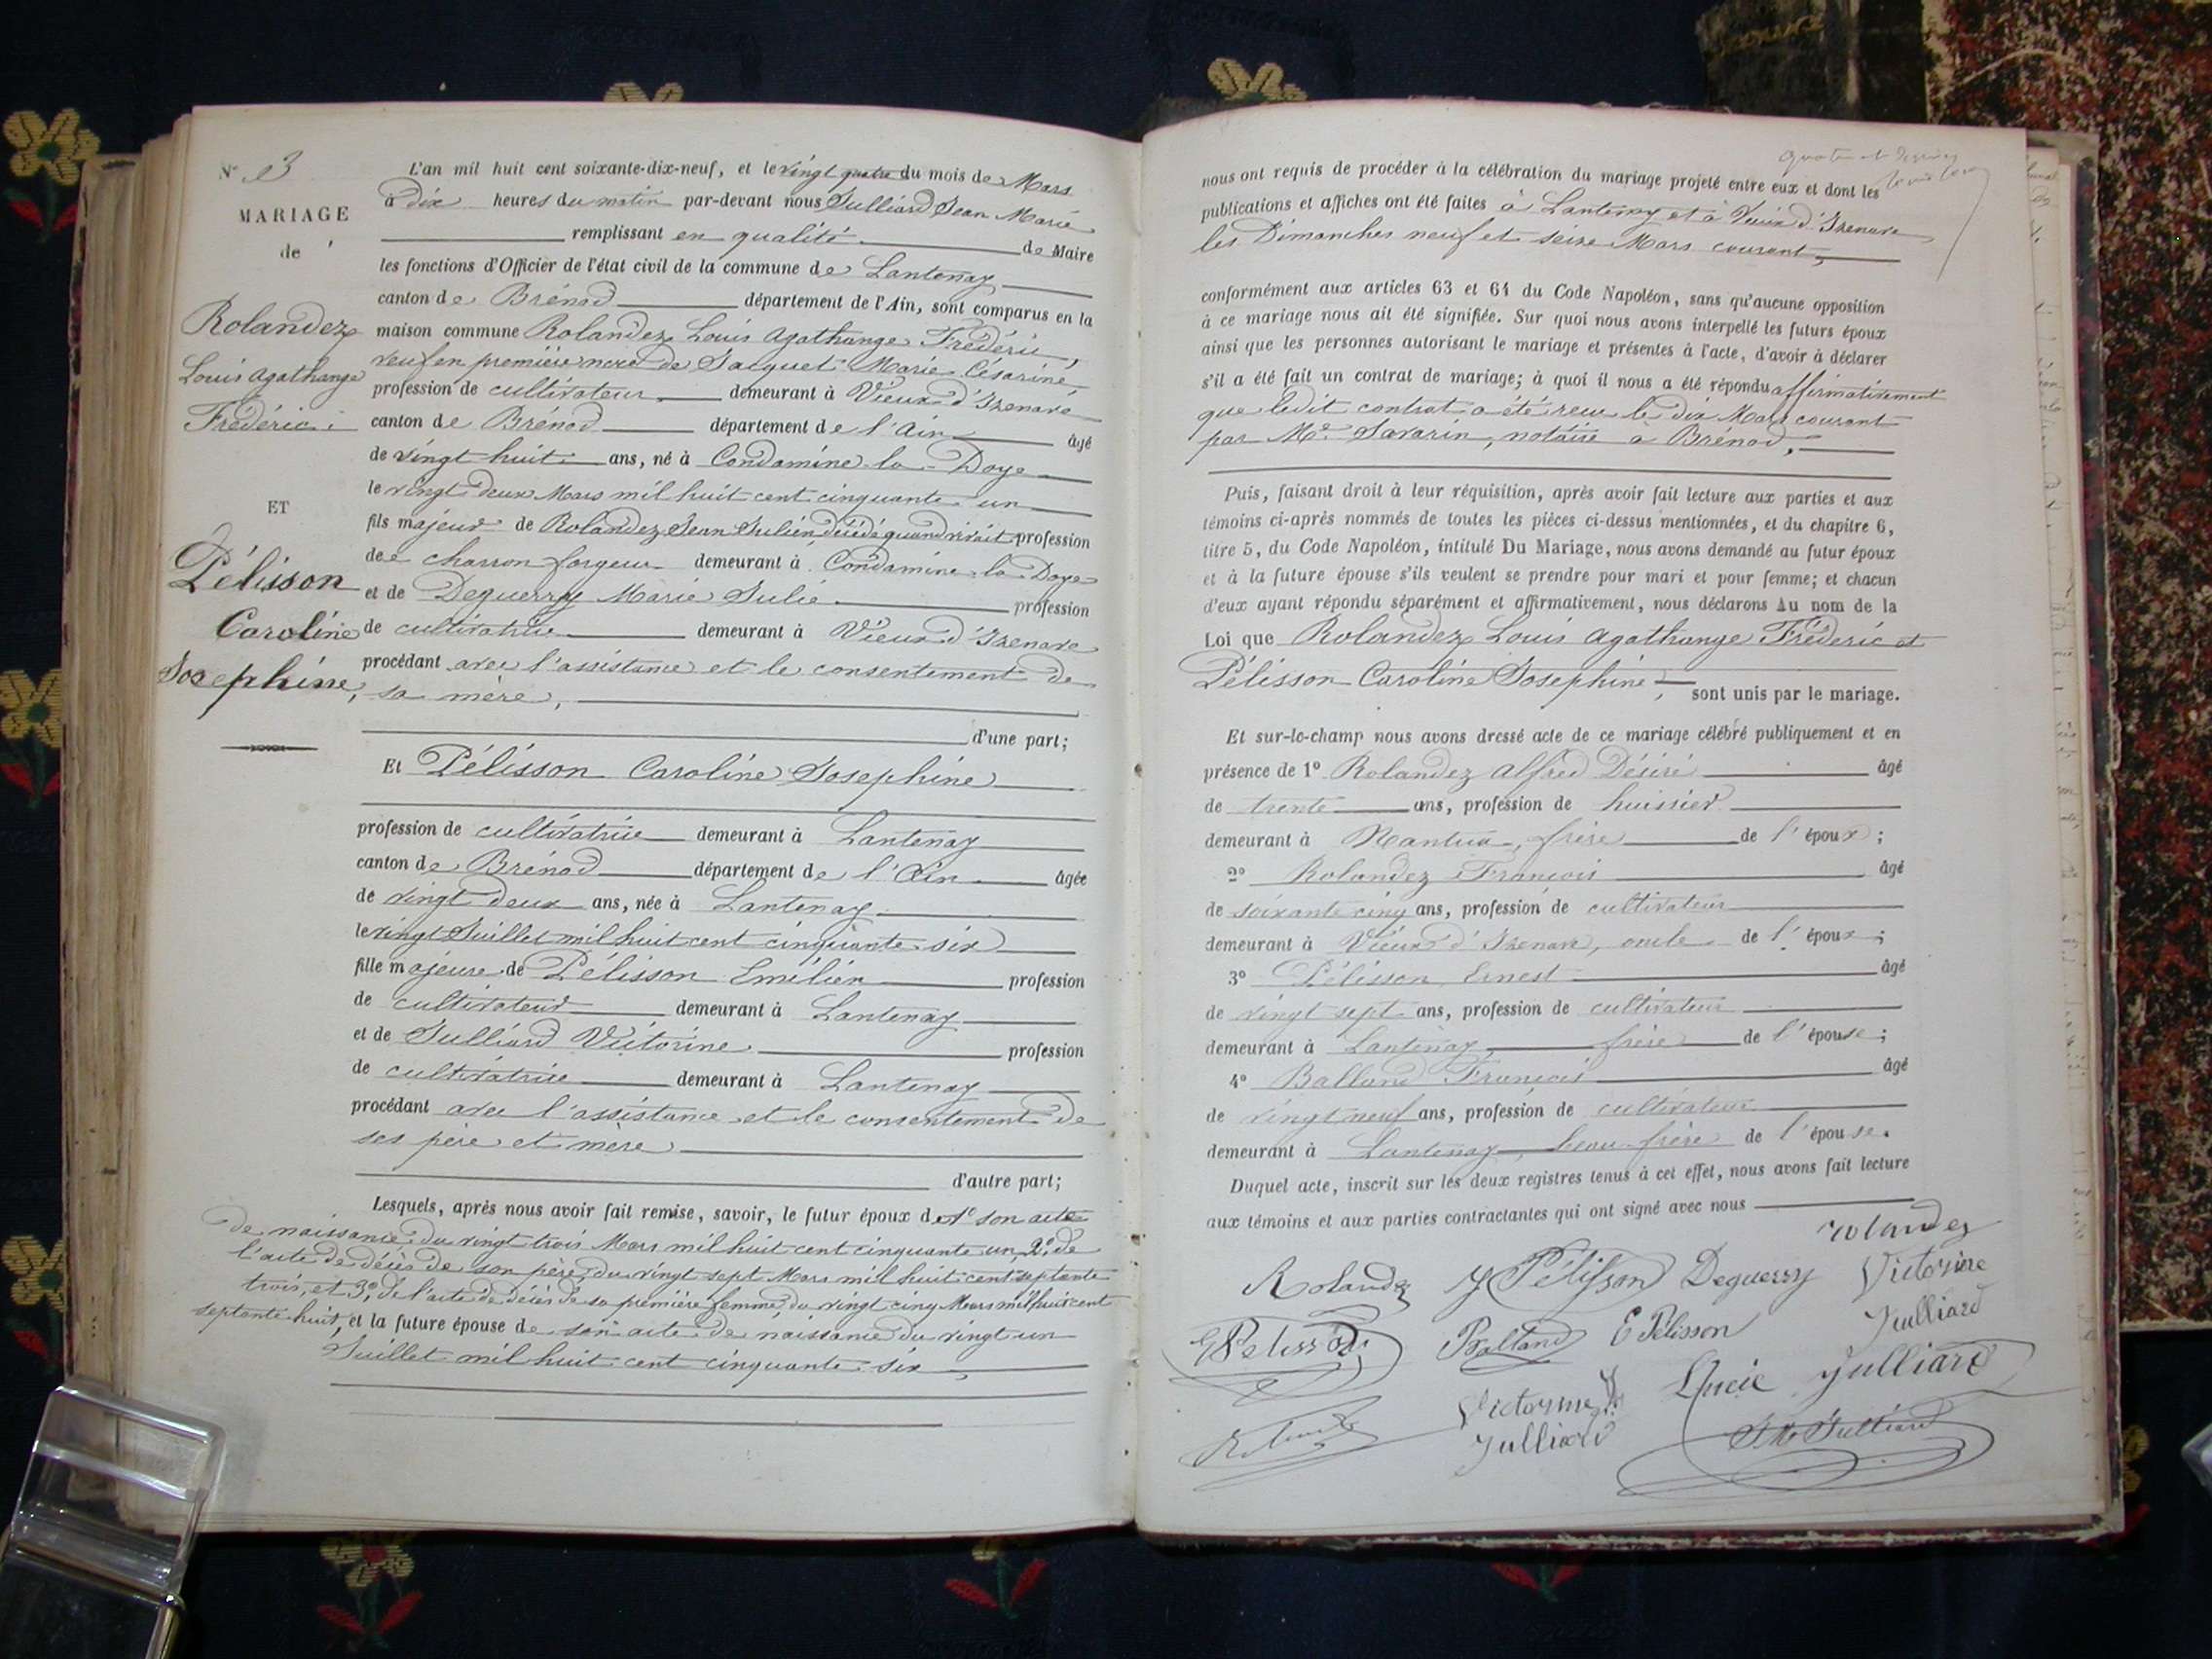 N° 3
MARIAGE
de
Rolandez
Louis Agathange
Frédéric
ET
Pélisson
Caroline
Josephine,
L'an mil huit cent soixante-dix-neuf, et le vingt quatre du mois de Mars
à dix heures du matin par-devant nous Julliard Jean Marie
remplissant en qualité de Maire
les fonctions d'Officier de l'état civil de la commune de Lantenay
canton de Brénod département de l'Ain, sont comparus en la
maison commune Rolandez Louis Agathange Frédéric,
veuf en première noce de Jacquet Marie Césarine
profession de cultivateur demeurant à Vieux d'Izenave
canton de Brénod département de l'Ain âgé
de vingt huit ans, né à Condamine la Doye
le vingt deux Mars mil huit cent cinquante un
fils majeur de Rolandez Jean Julien, décédé quand vivait profession
de charron forgeur demeurant à Condamine la Doye
et de Deguerry Marie Julie profession
de cultivatrice demeurant à Vieux d'Izenave
procédant avec l'assistance et le consentement de
sa mère,
d'une part;
Et Pélisson Caroline Josephine
profession de cultivatrice demeurant à Lantenay
canton de Brénod département de l'Ain âgée
de vingt deux ans, née à Lantenay
le vingt Juillet mil huit cent cinquante six
fille majeure de Pélisson Emilien profession
de cultivateur demeurant à Lantenay
et de Julliard Victorine profession
de cultivatrice demeurant à Lantenay
procédant avec l'assistance et le consentement de
ses père et mère
d'autre part;
Lesquels, après nous avoir fait remise, savoir, le futur époux de 1° son acte
de naissance du vingt trois Mars mil huit cent cinquante un, 2° de
l'acte de décès de son père, du vingt sept Mars mil huit cent septante
trois, et 3° de l'acte de décès de sa première femme du vingt cinq Mars mil huit cent
septante huit, et la future épouse de son acte de naissance du vingt un
Juillet mil huit cent cinquante six,
nous ont requis de procéder à la célébration du mariage projeté entre eux et dont les
publications et affiches ont été faites à Lantenay et à Vieux d'Izenave
les Dimanches neuf et seize Mars courant,
conformément aux articles 63 et 64 du Code Napoléon, sans qu'aucune opposition
à ce mariage nous ait été signifiée. Sur quoi nous avons interpellé les futurs époux
ainsi que les personnes autorisant le mariage et présentes à l'acte, d'avoir à déclarer
s'il a été fait un contrat de mariage; à quoi il nous a été répondu affirmativement
que ledit contrat a été reçu le dix Mars courant
par Me Savarin, notaire à Brénod,
Puis, faisant droit à leur réquisition, après avoir fait lecture aux parties et aux
témoins ci-après nommés de toutes les pièces ci-dessus mentionnées, et du chapitre 6,
titre 5, du Code Napoléon, intitulé Du Mariage, nous avons demandé au futur époux
et à la future épouse s'ils veulent se prendre pour mari et pour femme; et chacun
d'eux ayant répondu séparément et affirmativement, nous déclarons Au nom de la
Loi que Rolandez Louis Agathange Frédéric et
Pélisson Caroline Josephine, sont unis par le mariage.
Et sur-le-champ nous avons dressé acte de ce mariage célébré publiquement et en
présence de 1° Rolandez Alfred Désiré âgé
de trente ans, profession de huissier
demeurant à Nantua, frère de l'époux;
2° Rolandez François âgé
de soixante cinq ans, profession de cultivateur
demeurant à Vieux d'Izenave, oncle de l'époux;
3° Pélisson Ernest âgé
de vingt sept ans, profession de cultivateur
demeurant à Lantenay, frère de l'épouse;
4° Balland François âgé
de vingt neuf ans, profession de cultivateur
demeurant à Lantenay, beau-frère de l'épouse.
Duquel acte, inscrit sur les deux registres tenus à cet effet, nous avons fait lecture
aux témoins et aux parties contractantes qui ont signé avec nous
Rolandez
Rolandez J Pélisson Deguerry Victorine
Julliard
Pelisson Balland E Pélisson
Victorine Lucie Julliard
Julliard J M Julliard